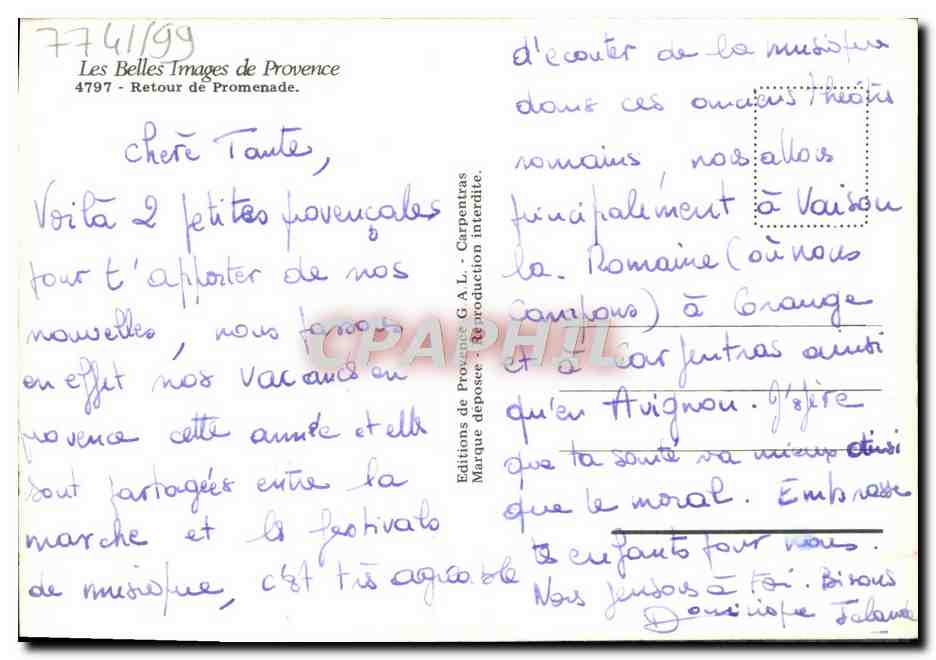 7741/99
Les Belles Images de Provence
4797 - Retour de Promenade.
Chère Tante,
Voilà 2 petites provençales
pour t'apporter de nos
nouvelles, nous passons
en effet nos vacances en
provence cette année et elles
sont partagées entre la
marche et les festivals
de musique, c'est très agréable
Editions de Provence G.A.L. - Carpentras
Marque déposée - Reproduction interdite.
CPAPHIL
d'écouter de la musique
dans ces anciens théâtres
romains, nos allons
principalement à Vaison
la - Romaine (où nous
campons) à Orange
et à Carpentras ainsi
qu'en Avignon. J'espère
que ta santé va mieux ainsi
que le moral. Embrasse
tes enfants pour nous.
Nous pensons à toi. Bisous
Dominique